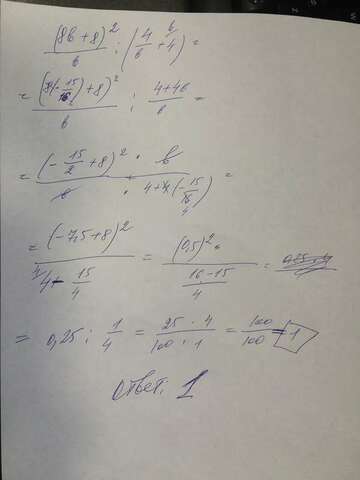 (8b+8)² / b : (4/b + 4) =
= (8(-15/16)+8)² / b : (4+4b)/b =
= (-15/2+8)² · b / b · 4+4(-15/16) =
= (-7,5+8)² / 4-15/4 = (0,5)² / (16-15)/4 =
= 0,25 : 1/4 = 25·4 / 100·1 = 100/100 = 1
Ответ. 1